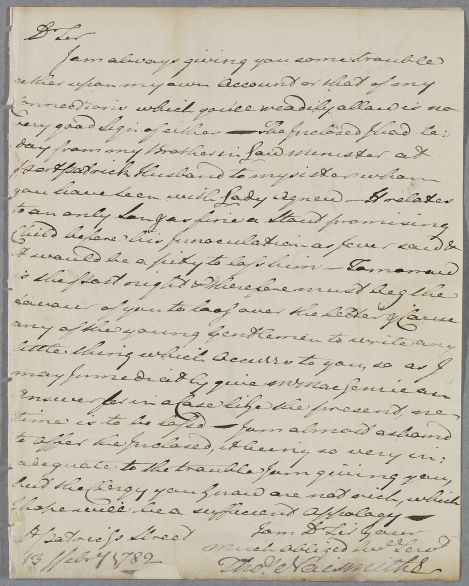 Dr Sir
I am always giving you some trouble
either upon my own account or that of my
Connections which you'll readily allow is no
very good sign of either — The Inclosed I had to:
day from my Brother in Law Minister at
Portpatrick Husband to my sister whom
you have seen with Lady Agnew — It relates
to an only son as fine a Stout promising
Child before his innoculation as I ever saw &
it would be a pity to loss him — Tomorrow
is the post night & therefore must beg the
favour of you to look over the Letter & Cause
any of the young Gentlemen to write any
little thing which occurrs to you, so as I
may Immediatly give Mr MacKenzie an
answer for in a Case like the present no
time is to be lost — I am almost ashamd
to offer the Inclosed, it being so very in:
adequate to the trouble I am giving you,
but the Clergy you know are not rich, which
I hope will be a sufficient appology —
I am Dr Sir your
St patricks Street
much obliged huml Servt
13 Febry 1782
Thos Naismith